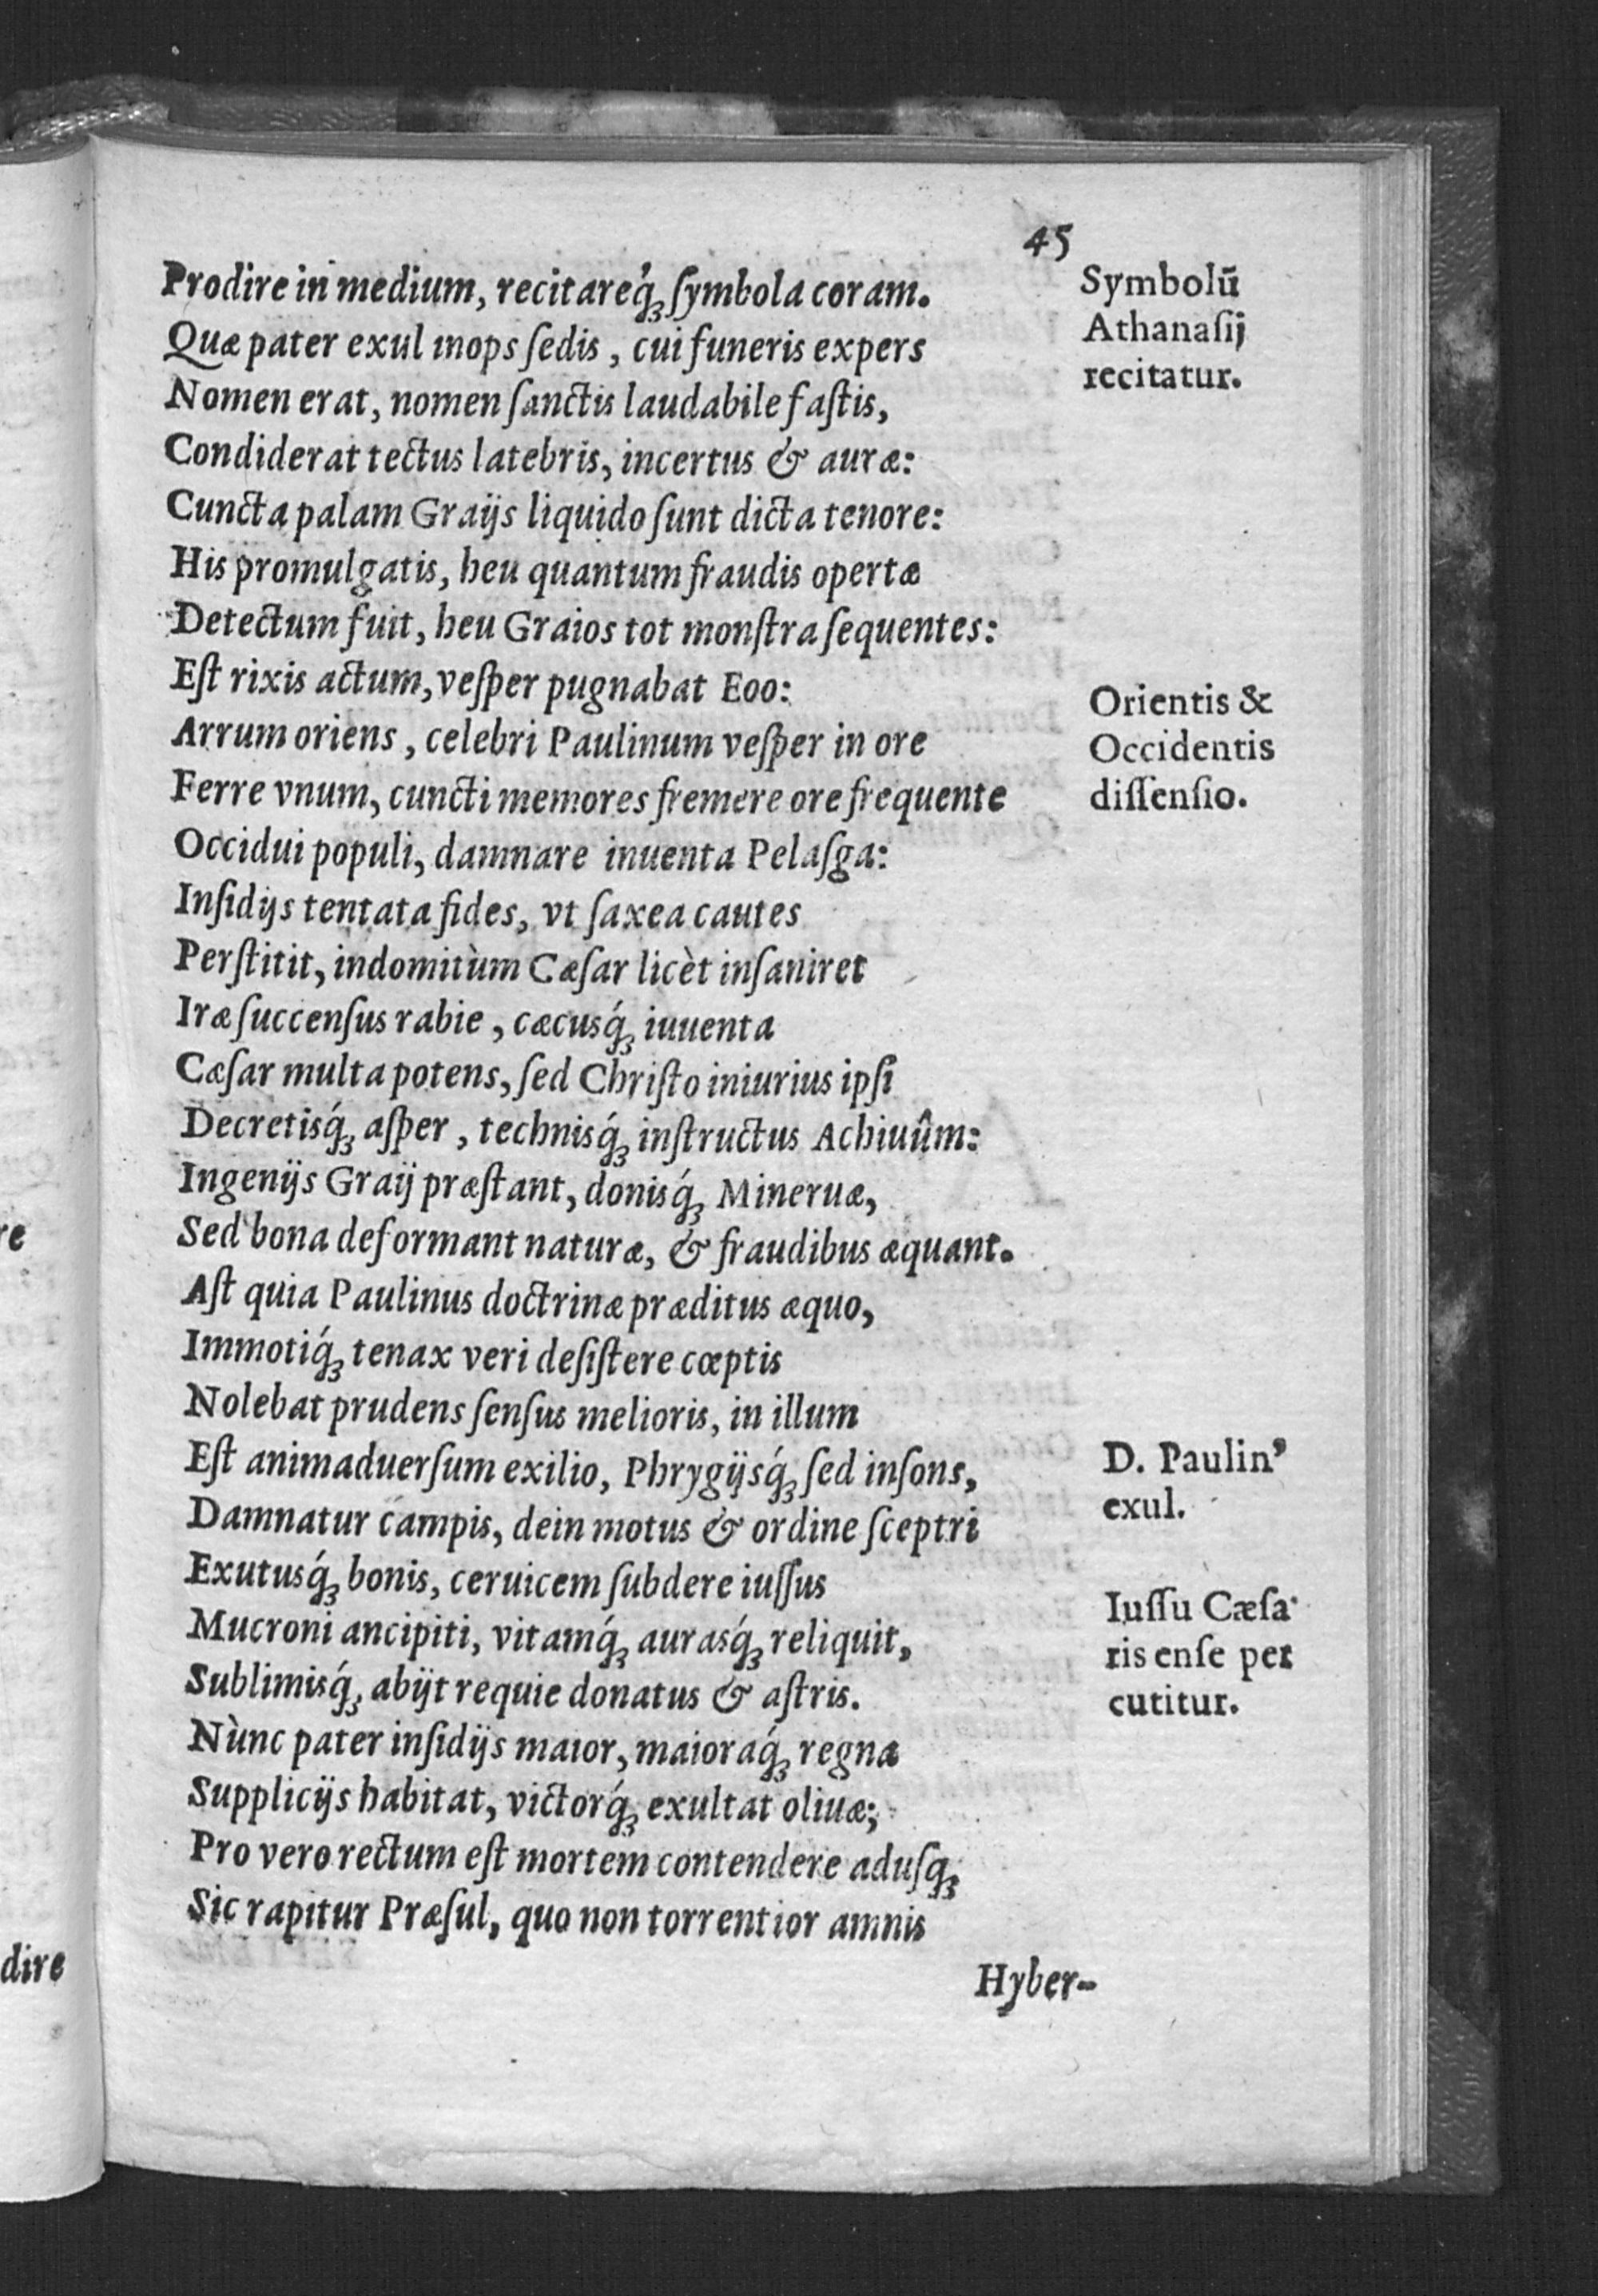 45
Prodire in medium, recitareq́; ſymbola coram.
Quæ pater exul inops ſedis, cui funeris expers
Nomen erat, nomen ſanctis laudabile faſtis,
Condiderat tectus latebris, incertus & auræ:
Cuncta palam Graijs liquido ſunt dicta tenore:
His promulgatis, heu quantum fraudis opertæ
Detectum fuit, heu Graios tot monſtra ſequentes:
Eſt rixis actum, veſper pugnabat Eoo:
Arrum oriens, celebri Paulinum veſper in ore
Ferre vnum, cuncti memores fremere ore frequente
Occidui populi, damnare inuenta Pelaſga:
Inſidijs tentata fides, vt ſaxea cautes
Perſtitit, indomitùm Cæſar licèt inſaniret
Iræ ſuccenſus rabie, cæcusq́; iuuenta
Cæſar multa potens, ſed Chriſto iniurius ipſi
Decretisq́; aſper, technisq́; inſtructus Achiuûm:
Ingenijs Graij præſtant, donisq́; Mineruæ,
Sed bona deformant naturæ, & fraudibus æquant.
Aſt quia Paulinus doctrinæ præditus æquo,
Immotiq́; tenax veri deſiſtere cœptis
Nolebat prudens ſenſus melioris, in illum
Eſt animaduerſum exilio, Phrygijsq́; ſed inſons,
Damnatur campis, dein motus & ordine ſceptri
Exutusq́; bonis, ceruicem ſubdere iuſſus
Mucroni ancipiti, vitamq́; aurasq́; reliquit,
Sublimisq́; abijt requie donatus & aſtris.
Nùnc pater inſidijs maior, maioraq́; regna
Supplicijs habitat, victorq́; exultat oliuæ;
Pro vero rectum eſt mortem contendere aduſq;
Sic rapitur Præſul, quo non torrentior amnis
Hyber-
Symbolũ
Athanaſij
recitatur.
Orientis &
Occidentis
diſſenſio.
D. Paulin'
exul.
Iuſſu Cæſa-
ris enſe per
cutitur.
re
dire